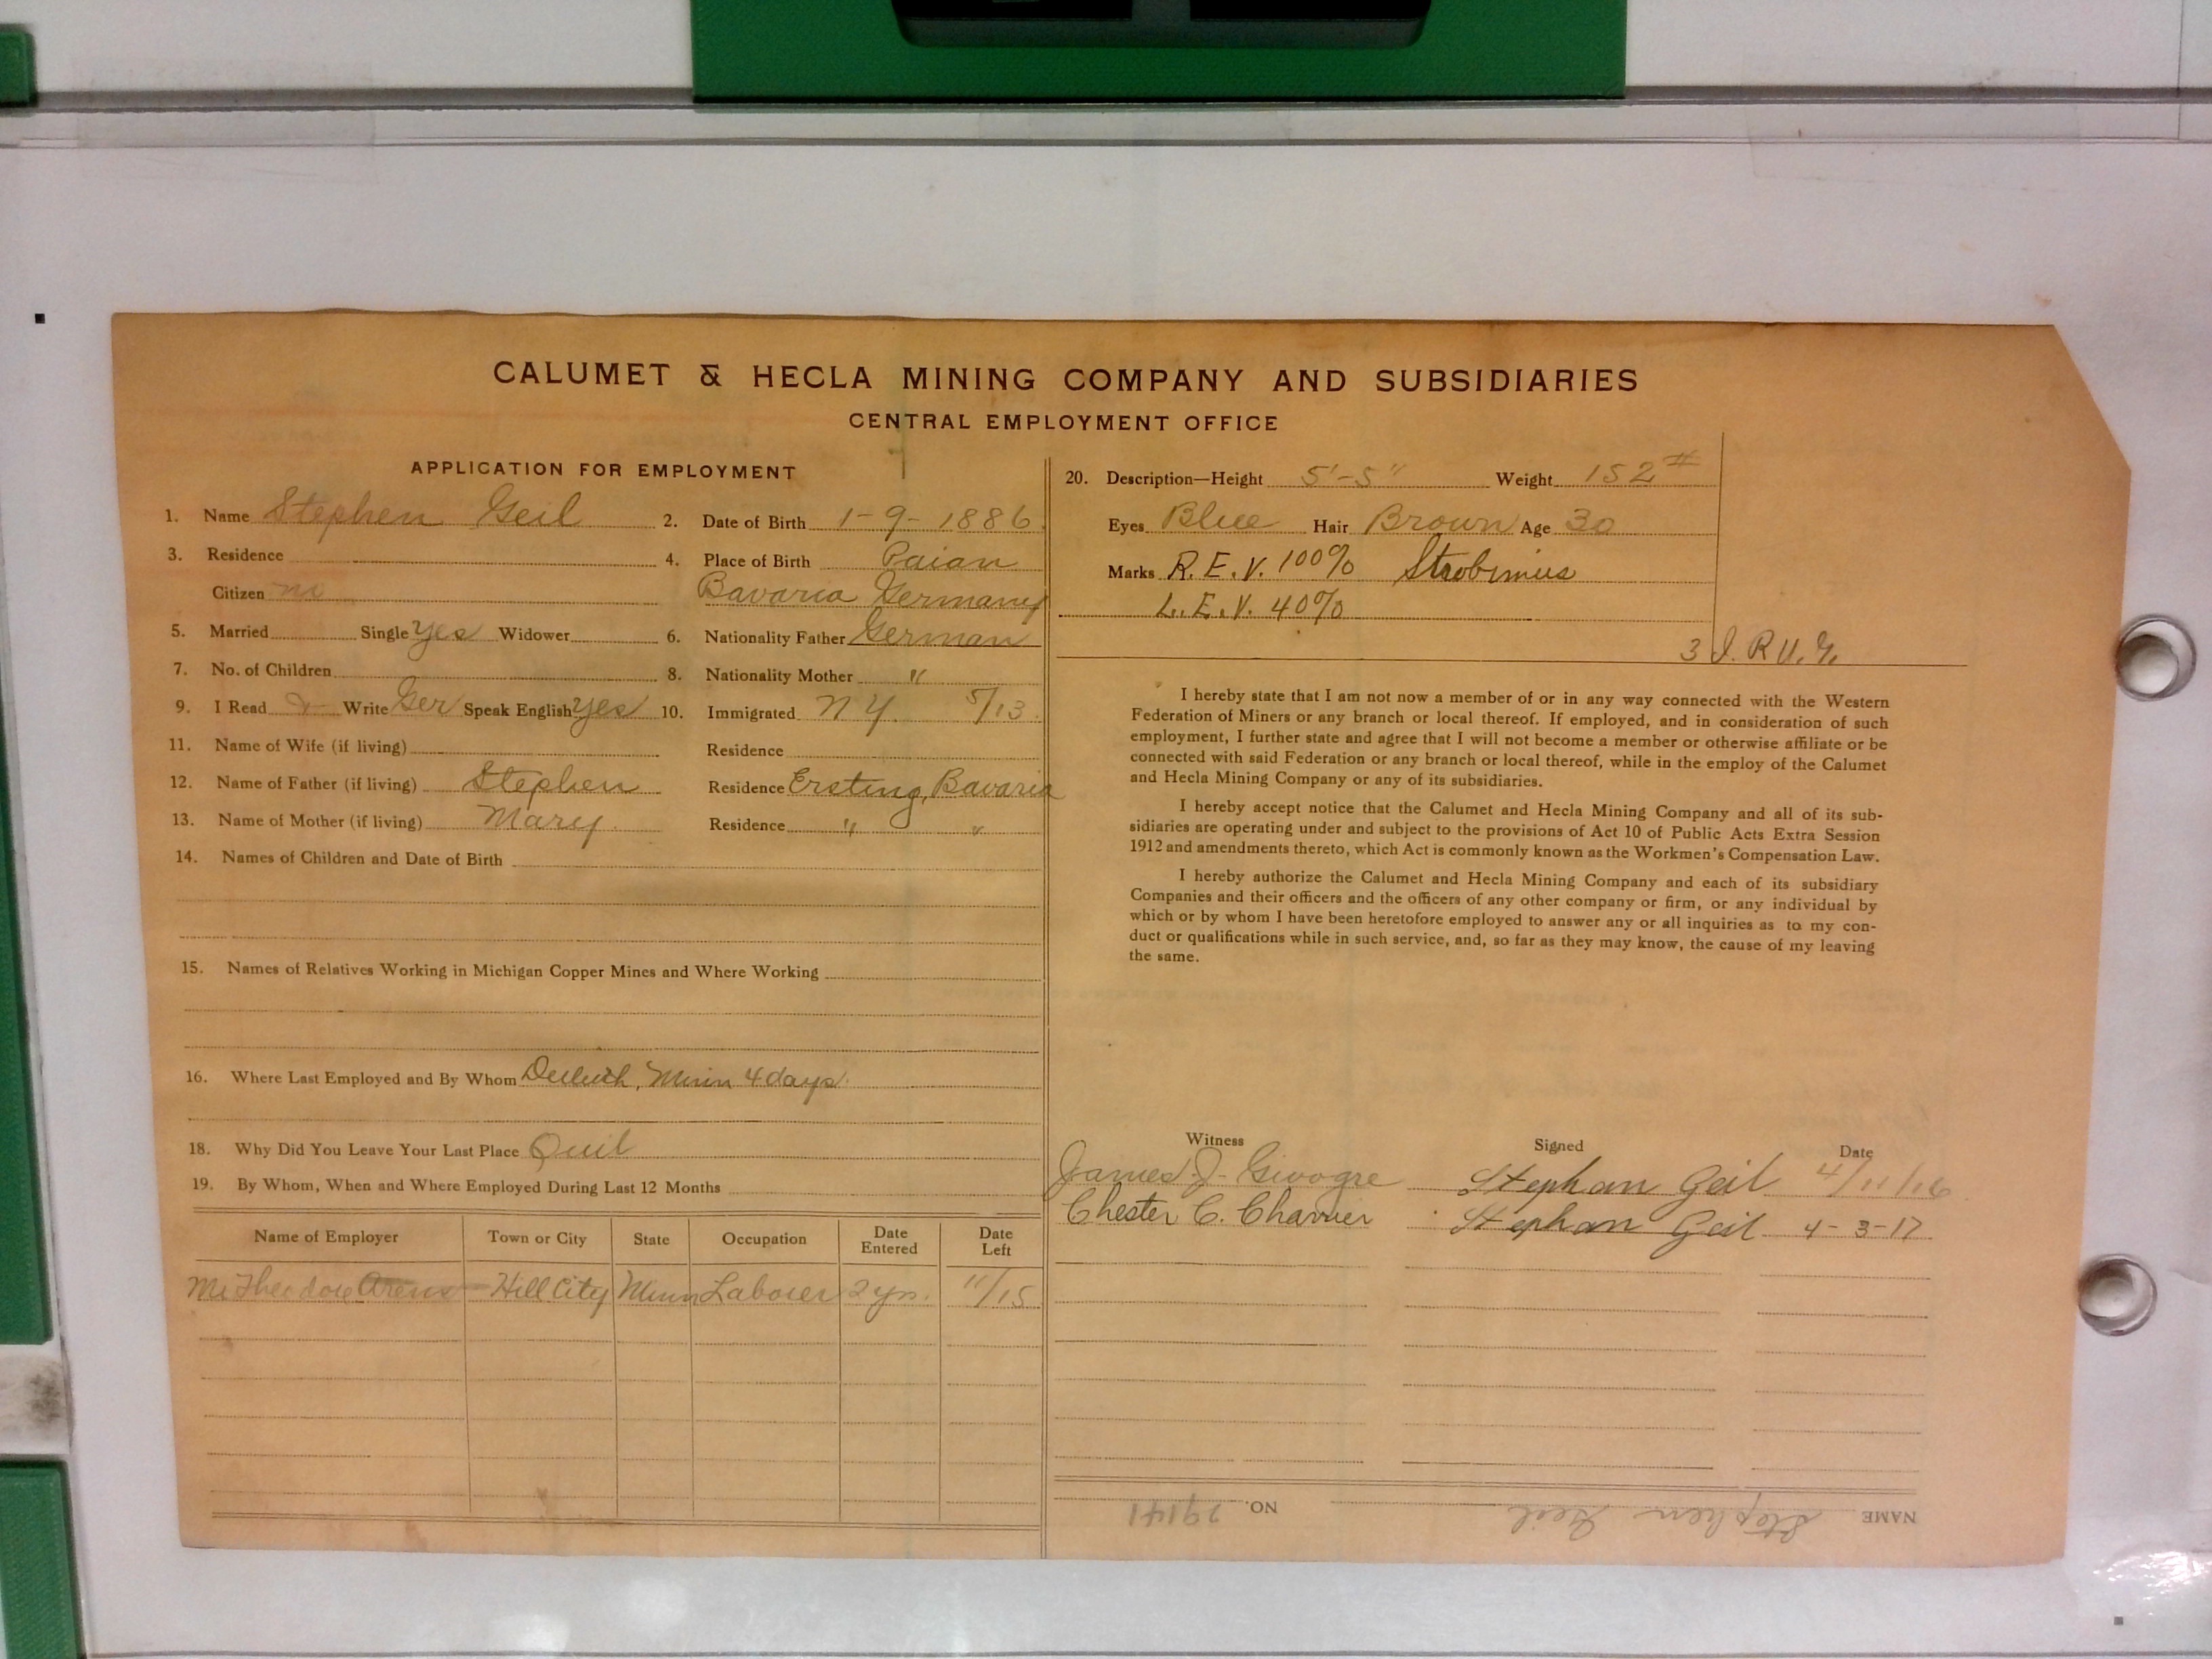 CALUMET & HECLA MINING COMPANY AND SUBSIDIARIES
CENTRAL EMPLOYMENT OFFICE
APPLICATION FOR EMPLOYMENT
1. Name Stephen Geil 2. Date of Birth 1-9-1886
3. Residence 4. Place of Birth Paian
Citizen no Bavaria Germany
5. Married Single Yes Widower 6. Nationality Father German
7. No. of Children 8. Nationality Mother "
9. I Read & Write Ger Speak English Yes 10. Immigrated N Y. 5/13.
11. Name of Wife (if living) Residence
12. Name of Father (if living) Stephen Residence Ersting, Bavaria
13. Name of Mother (if living) Mary. Residence " "
14. Names of Children and Date of Birth
15. Names of Relatives Working in Michigan Copper Mines and Where Working
16. Where Last Employed and By Whom Duluth, Minn 4 days.
18. Why Did You Leave Your Last Place Quit
19. By Whom, When and Where Employed During Last 12 Months
Name of Employer Town or City State Occupation Date Entered Date Left
Theodore Arens Hill City Minn Laborer 2 yrs. 11/15
20. Description—Height 5'-5" Weight 152#
Eyes Blue Hair Brown Age 30
Marks R.E.V. 100% Strobimus
L.E.V. 40%
I hereby state that I am not now a member of or in any way connected with the Western
Federation of Miners or any branch or local thereof. If employed, and in consideration of such
employment, I further state and agree that I will not become a member or otherwise affiliate or be
connected with said Federation or any branch or local thereof, while in the employ of the Calumet
and Hecla Mining Company or any of its subsidiaries.
I hereby accept notice that the Calumet and Hecla Mining Company and all of its sub-
sidiaries are operating under and subject to the provisions of Act 10 of Public Acts Extra Session
1912 and amendments thereto, which Act is commonly known as the Workmen's Compensation Law.
I hereby authorize the Calumet and Hecla Mining Company and each of its subsidiary
Companies and their officers and the officers of any other company or firm, or any individual by
which or by whom I have been heretofore employed to answer any or all inquiries as to my con-
duct or qualifications while in such service, and, so far as they may know, the cause of my leaving
the same.
Witness Signed Date
James J. Givogre Stephan Geil 4/11/16
Chester C. Charrier Stephan Geil 4-3-17
NAME Stephen Geil NO. 29141